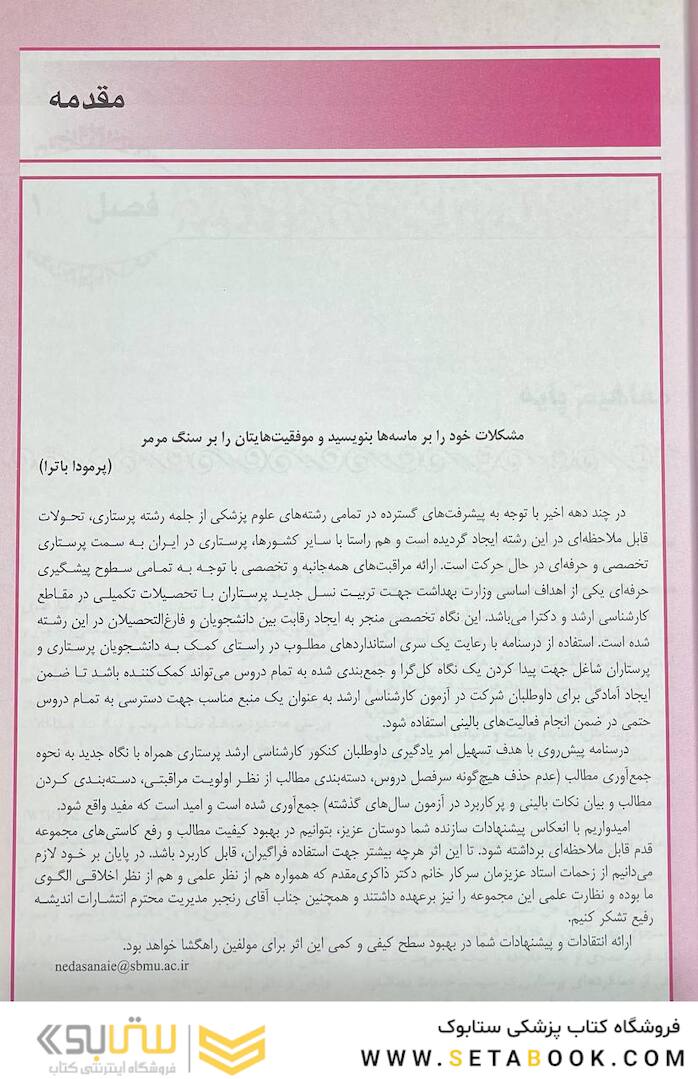 مقدمه
مشکلات خود را بر ماسه‌ها بنویسید و موفقیت‌هایتان را بر سنگ مرمر
(پرمودا باترا)
در چند دهه اخیر با توجه به پیشرفت‌های گسترده در تمامی رشته‌های علوم پزشکی از جلمه رشته پرستاری، تحولات
قابل ملاحظه‌ای در این رشته ایجاد گردیده است و هم راستا با سایر کشورها، پرستاری در ایران به سمت پرستاری
تخصصی و حرفه‌ای در حال حرکت است. ارائه مراقبت‌های همه‌جانبه و تخصصی با توجه به تمامی سطوح پیشگیری
حرفه‌ای یکی از اهداف اساسی وزارت بهداشت جهت تربیت نسل جدید پرستاران با تحصیلات تکمیلی در مقاطع
کارشناسی ارشد و دکترا می‌باشد. این نگاه تخصصی منجر به ایجاد رقابت بین دانشجویان و فارغ‌التحصیلان در این رشته
شده است. استفاده از درسنامه با رعایت یک سری استانداردهای مطلوب در راستای کمک به دانشجویان پرستاری و
پرستاران شاغل جهت پیدا کردن یک نگاه کل‌گرا و جمع‌بندی شده به تمام دروس می‌تواند کمک‌کننده باشد تا ضمن
ایجاد آمادگی برای داوطلبان شرکت در آزمون کارشناسی ارشد به عنوان یک منبع مناسب جهت دسترسی به تمام دروس
حتمی در ضمن انجام فعالیت‌های بالینی استفاده شود.
درسنامه پیش‌روی با هدف تسهیل امر یادگیری داوطلبان کنکور کارشناسی ارشد پرستاری همراه با نگاه جدید به نحوه
جمع‌آوری مطالب (عدم حذف هیچ‌گونه سرفصل دروس، دسته‌بندی مطالب از نظر اولویت مراقبتی، دسته‌بندی کردن
مطالب و بیان نکات بالینی و پرکاربرد در آزمون سال‌های گذشته) جمع‌آوری شده است و امید است که مفید واقع شود.
امیدواریم با انعکاس پیشنهادات سازنده شما دوستان عزیز، بتوانیم در بهبود کیفیت مطالب و رفع کاستی‌های مجموعه
قدم قابل ملاحظه‌ای برداشته شود. تا این اثر هرچه بیشتر جهت استفاده فراگیران، قابل کاربرد باشد. در پایان بر خود لازم
می‌دانیم از زحمات استاد عزیزمان سرکار خانم دکتر ذاکری‌مقدم که همواره هم از نظر علمی و هم از نظر اخلاقی الگوی
ما بوده و نظارت علمی این مجموعه را نیز برعهده داشتند و همچنین جناب آقای رنجبر مدیریت محترم انتشارات اندیشه
رفیع تشکر کنیم.
ارائه انتقادات و پیشنهادات شما در بهبود سطح کیفی و کمی این اثر برای مولفین راهگشا خواهد بود.
nedasanaie@sbmu.ac.ir
فروشگاه کتاب پزشکی ستابوک
WWW.SETABOOK.COM
ستابوک
فروشگاه اینترنتی کتاب